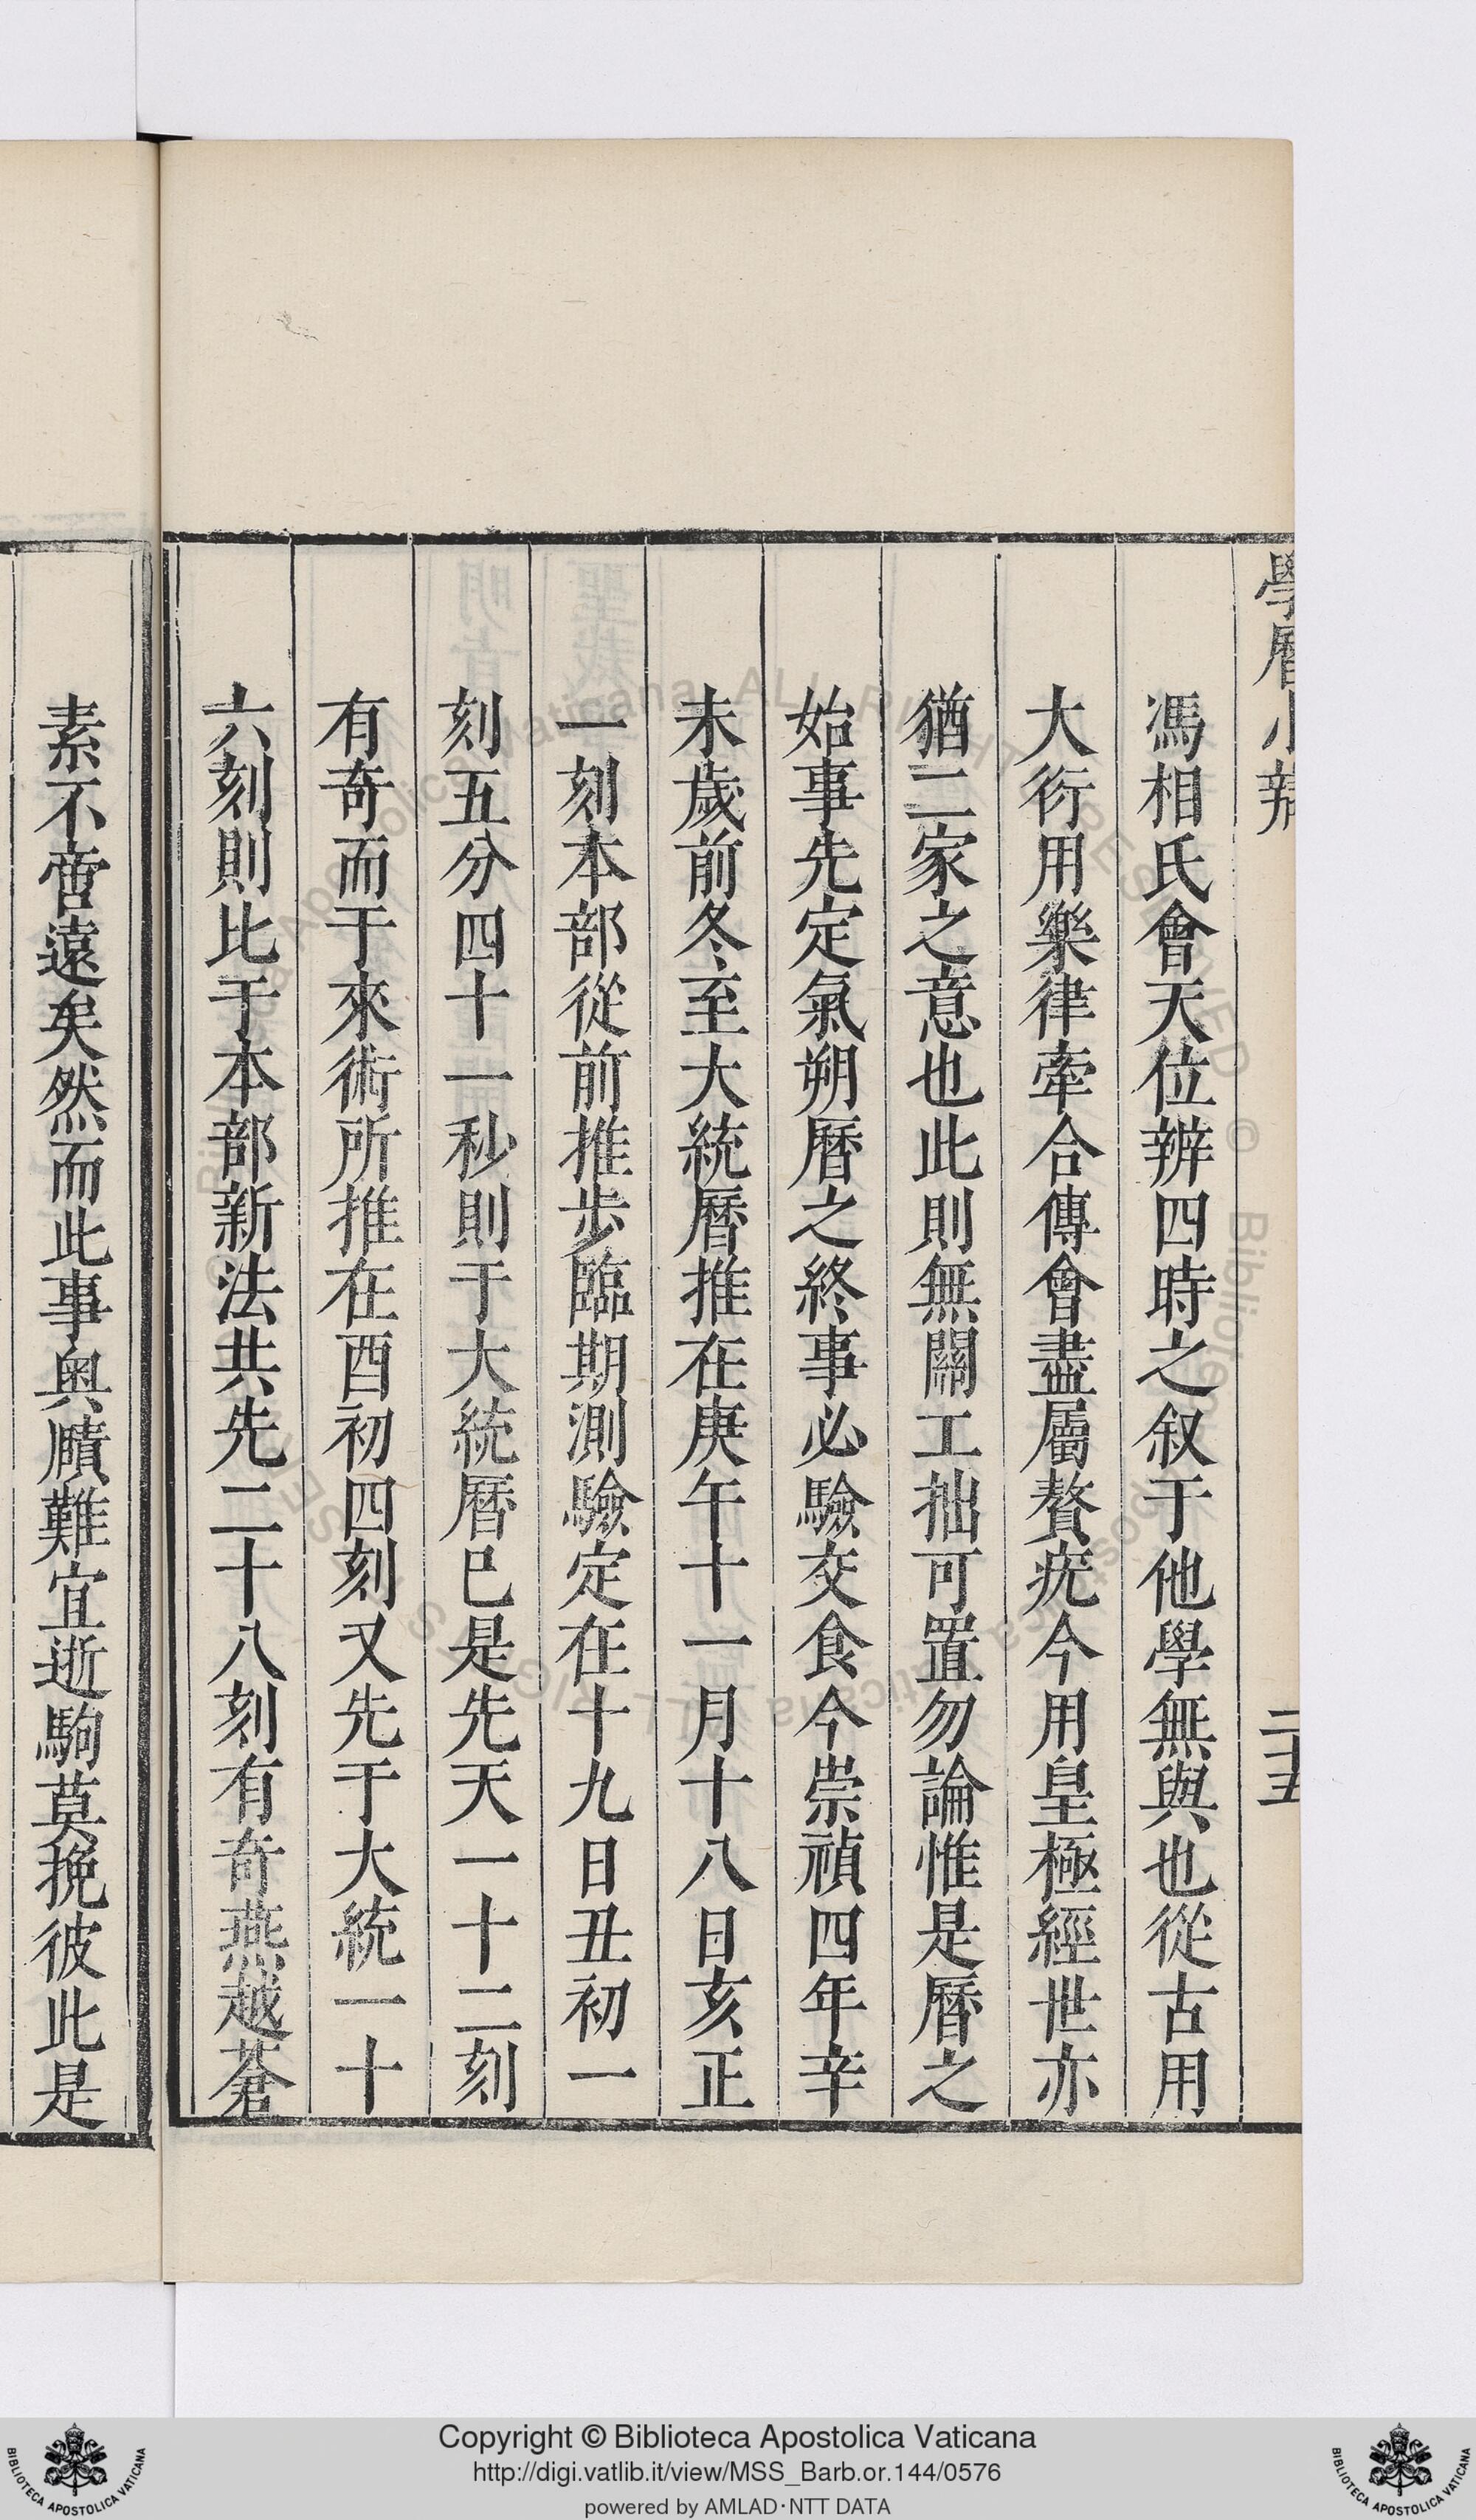 學曆小辨
二十五
馮相氏會天位辨四時之叙于他學無與也從古用
大衍用樂律牽合傳會盡屬贅疣今用皇極經世亦
猶二家之意也此則無關工拙可置勿論惟是曆之
始事先定氣朔曆之終事必驗交食今崇禎四年辛
未歲前冬至大統曆推在庚午十一月十八日亥正
一刻本部從前推步臨期測驗定在十九日丑初一
刻五分四十一秒則于大統曆已是先天一十二刻
有奇而于來術所推在酉初四刻又先于大統一十
六刻則比于本部新法共先二十八刻有奇燕越蒼
素不啻遠矣然而此事奥賾難宜逝駒莫挽彼此是
Copyright © Biblioteca Apostolica Vaticana
http://digi.vatlib.it/view/MSS_Barb.or.144/0576
powered by AMLAD·NTT DATA
BIBLIOTECA APOSTOLICA VATICANA
BIBLIOTECA APOSTOLICA VATICANA